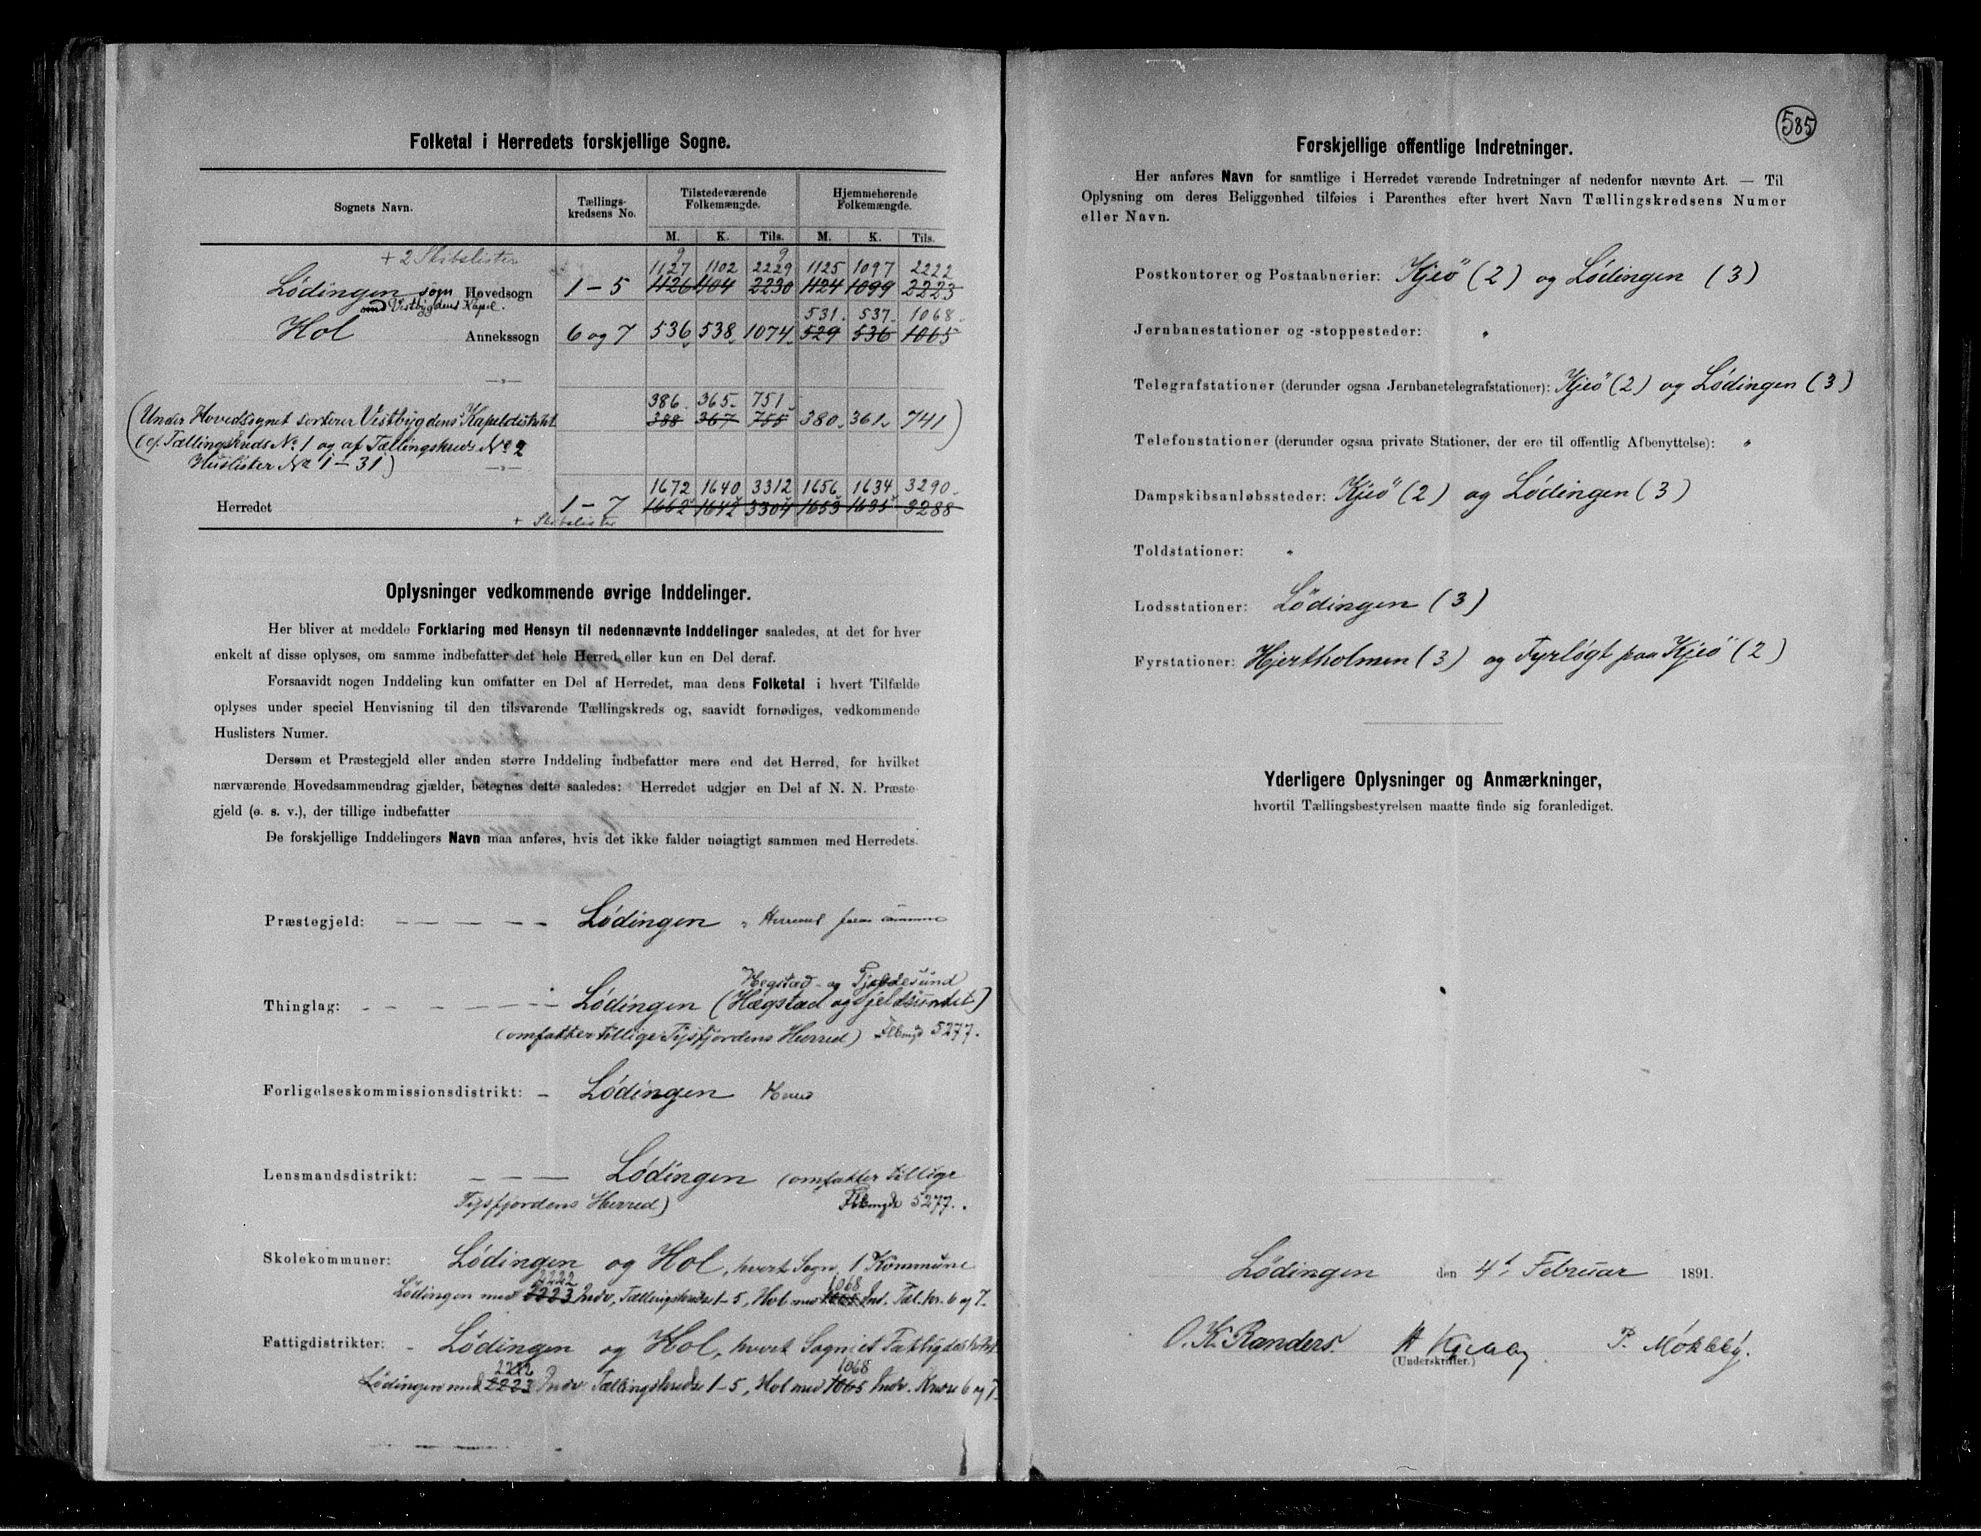 Folketal i Herredets forskjellige Sogne.
Sognets Navn. Tællings-kredsens No. Tilstedeværende Folkemængde. Hjemmehørende Folkemængde.
M. K. Tils. M. K. Tils.
9 9
+ 2 Skibslister 1127 1102 2229 1125 1097 2222
Lödingen sogn Hovedsogn 1 – 5 1126 1104 2230 1124 1099 2223
med Vestbygdens Kapel.
531. 537. 1068.
Hol Annekssogn 6 og 7 536 538 1074 529 536 1065
—„—
386. 365. 751
(Under Hovedsognet sorterer Vestbygdens Kapeldistrikt 388 367 755 380 361 741)
(cf. Tællingskreds No. 1 og af Tællingskreds No. 2
Huslister No. 1 – 31) —„—
1672 1640 3312 1656 1634 3290
Herredet 1 – 7 1662 1642 3304 1653 1635 3288
+ Skibslister
Oplysninger vedkommende øvrige Inddelinger.
Her bliver at meddele Forklaring med Hensyn til nedennævnte Inddelinger saaledes, at det for hver
enkelt af disse oplyses, om samme indbefatter det hele Herred eller kun en Del deraf.
Forsaavidt nogen Inddeling kun omfatter en Del af Herredet, maa dens Folketal i hvert Tilfælde
oplyses under speciel Henvisning til den tilsvarende Tællingskreds og, saavidt fornødiges, vedkommende
Huslisters Numer.
Dersom et Præstegjeld eller anden større Inddeling indbefatter mere end det Herred, for hvilket
nærværende Hovedsammendrag gjælder, betegnes dette saaledes: Herredet udgjør en Del af N. N. Præste-
gjeld (o. s. v.), der tillige indbefatter
De forskjellige Inddelingers Navn maa anføres, hvis det ikke falder nøiagtigt sammen med Herredets.
Præstegjeld: – – – – – Lödingen
Hegstad- og Tjeldesund
Thinglag: – – – – – – Lödingen (Hægstad og Tjeldsundet)
(omfatter tillige Tysfjordens Herred) 5277.
Forligelseskommissionsdistrikt: – Lödingen Herred
Lensmandsdistrikt: – – – Lödingen (omfatter tillige
Tysfjordens Herred) 5277.
Skolekommuner: Lödingen og Hol, hvert Sogn 1 Kommune
2222 1068
Lödingen med 2223 Indv, Tællingskredse 1–5, Hol med 1065 Ind. Tæl. kr. 6 og 7.
Fattigdistrikter: – Lödingen og Hol, hvert Sogn et Fattigdistrikt
2222 1068
Lödingen med 2223 Indv Tællingskredse 1–5, Hol med 1065 Indv. Kredse 6 og 7.
585
Forskjellige offentlige Indretninger.
Her anføres Navn for samtlige i Herredet værende Indretninger af nedenfor nævnte Art. — Til
Oplysning om deres Beliggenhed tilføies i Parenthes efter hvert Navn Tællingskredsens Numer
eller Navn.
Postkontorer og Postaabnerier: Kjeö (2) og Lödingen (3)
Jernbanestationer og -stoppesteder: „
Telegrafstationer (derunder ogsaa Jernbanetelegrafstationer): Kjeö (2) og Lödingen (3)
Telefonstationer (derunder ogsaa private Stationer, der ere til offentlig Afbenyttelse): „
Dampskibsanløbssteder: Kjeö (2) og Lödingen (3)
Toldstationer: „
Lodsstationer: Lödingen (3)
Fyrstationer: Hjertholmen (3) og Fyrlögt paa Kjeö (2)
Yderligere Oplysninger og Anmærkninger,
hvortil Tællingsbestyrelsen maatte finde sig foranlediget.
Lödingen den 4d. Februar 1891.
O. K. Randers. P. Mökleby.
(Underskrifter.)